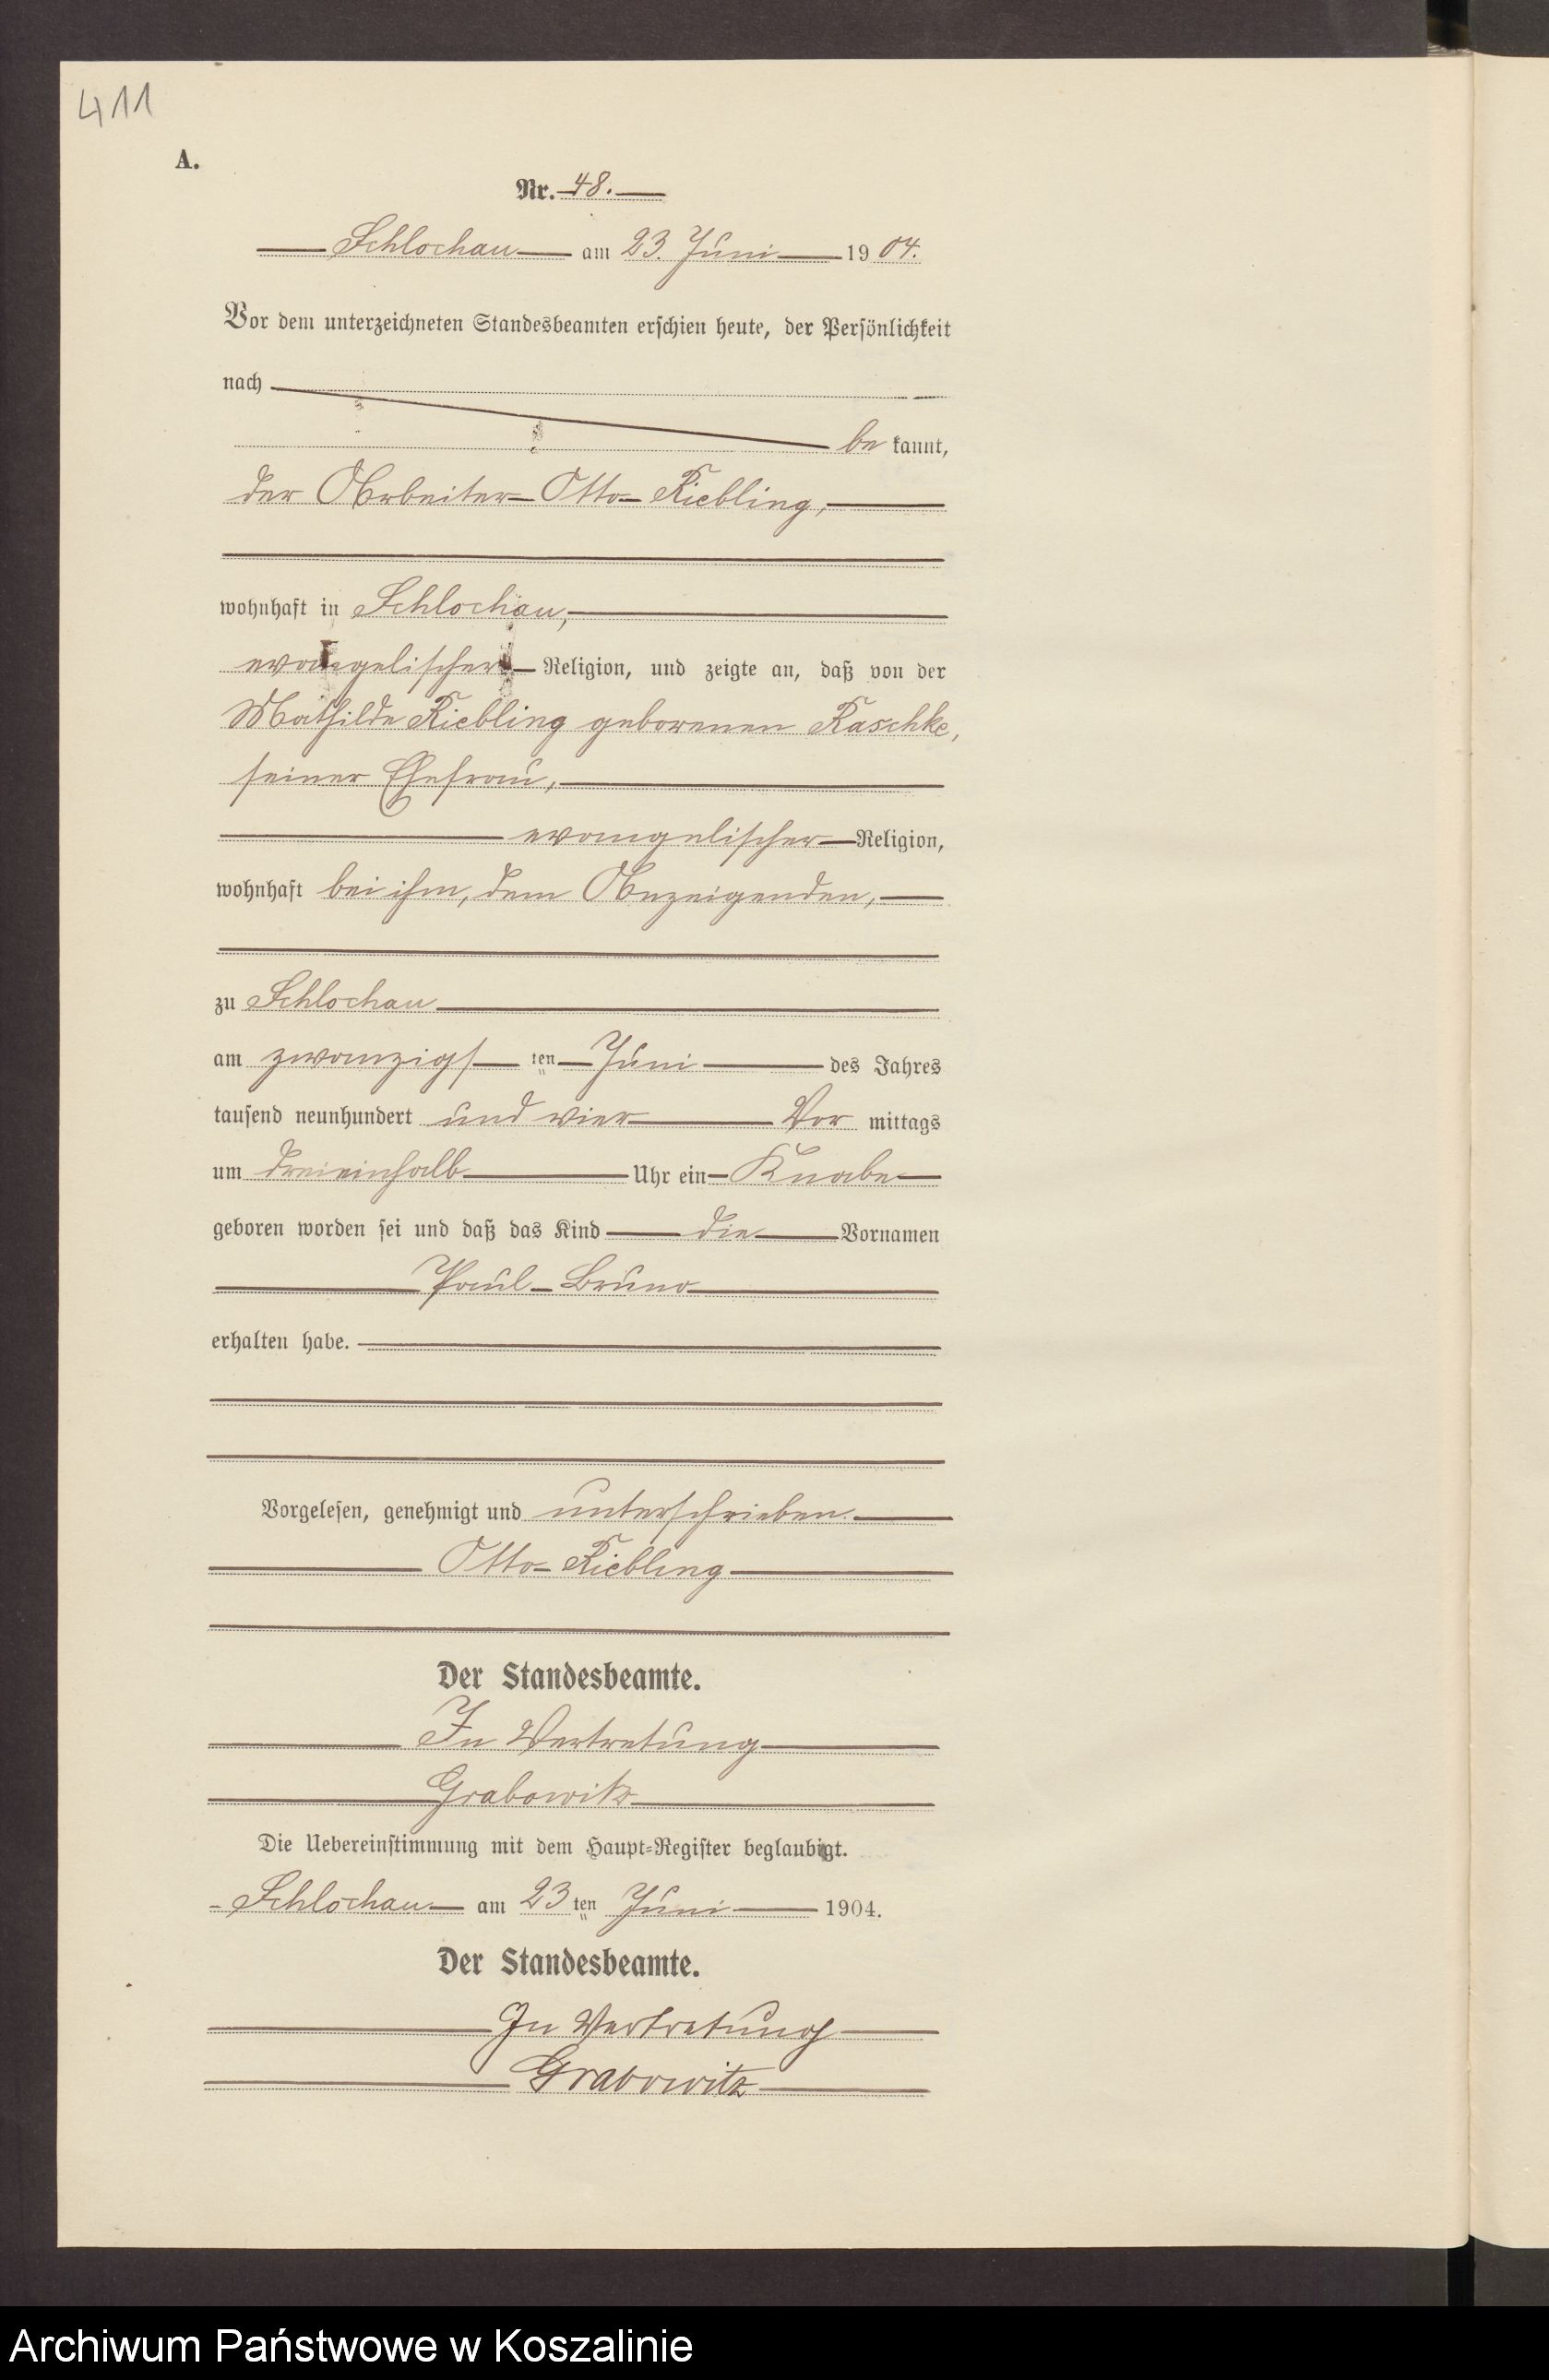 411
A.
Nr. 48.
Schlochau am 23. Juni 1904.
Vor dem unterzeichneten Standesbeamten erschien heute, der Persönlichkeit
nach
bekannt,
der Arbeiter Otto Riebling,
wohnhaft in Schlochau,
evangelischer Religion, und zeigte an, daß von der
Mathilde Riebling geborenen Raschke,
seiner Ehefrau,
evangelischer Religion,
wohnhaft bei ihm, dem Anzeigenden,
zu Schlochau
am zwanzigsten Juni des Jahres
tausend neunhundert und vier Vormittags
um dreieinhalb Uhr ein Knabe
geboren worden sei und daß das Kind die Vornamen
Paul Bruno
erhalten habe.
Vorgelesen, genehmigt und unterschrieben.
Otto Riebling
Der Standesbeamte.
In Vertretung
Grabowitz
Die Uebereinstimmung mit dem Haupt-Register beglaubigt.
Schlochau am 23ten Juni 1904.
Der Standesbeamte.
In Vertretung
Grabowitz
Archiwum Państwowe w Koszalinie